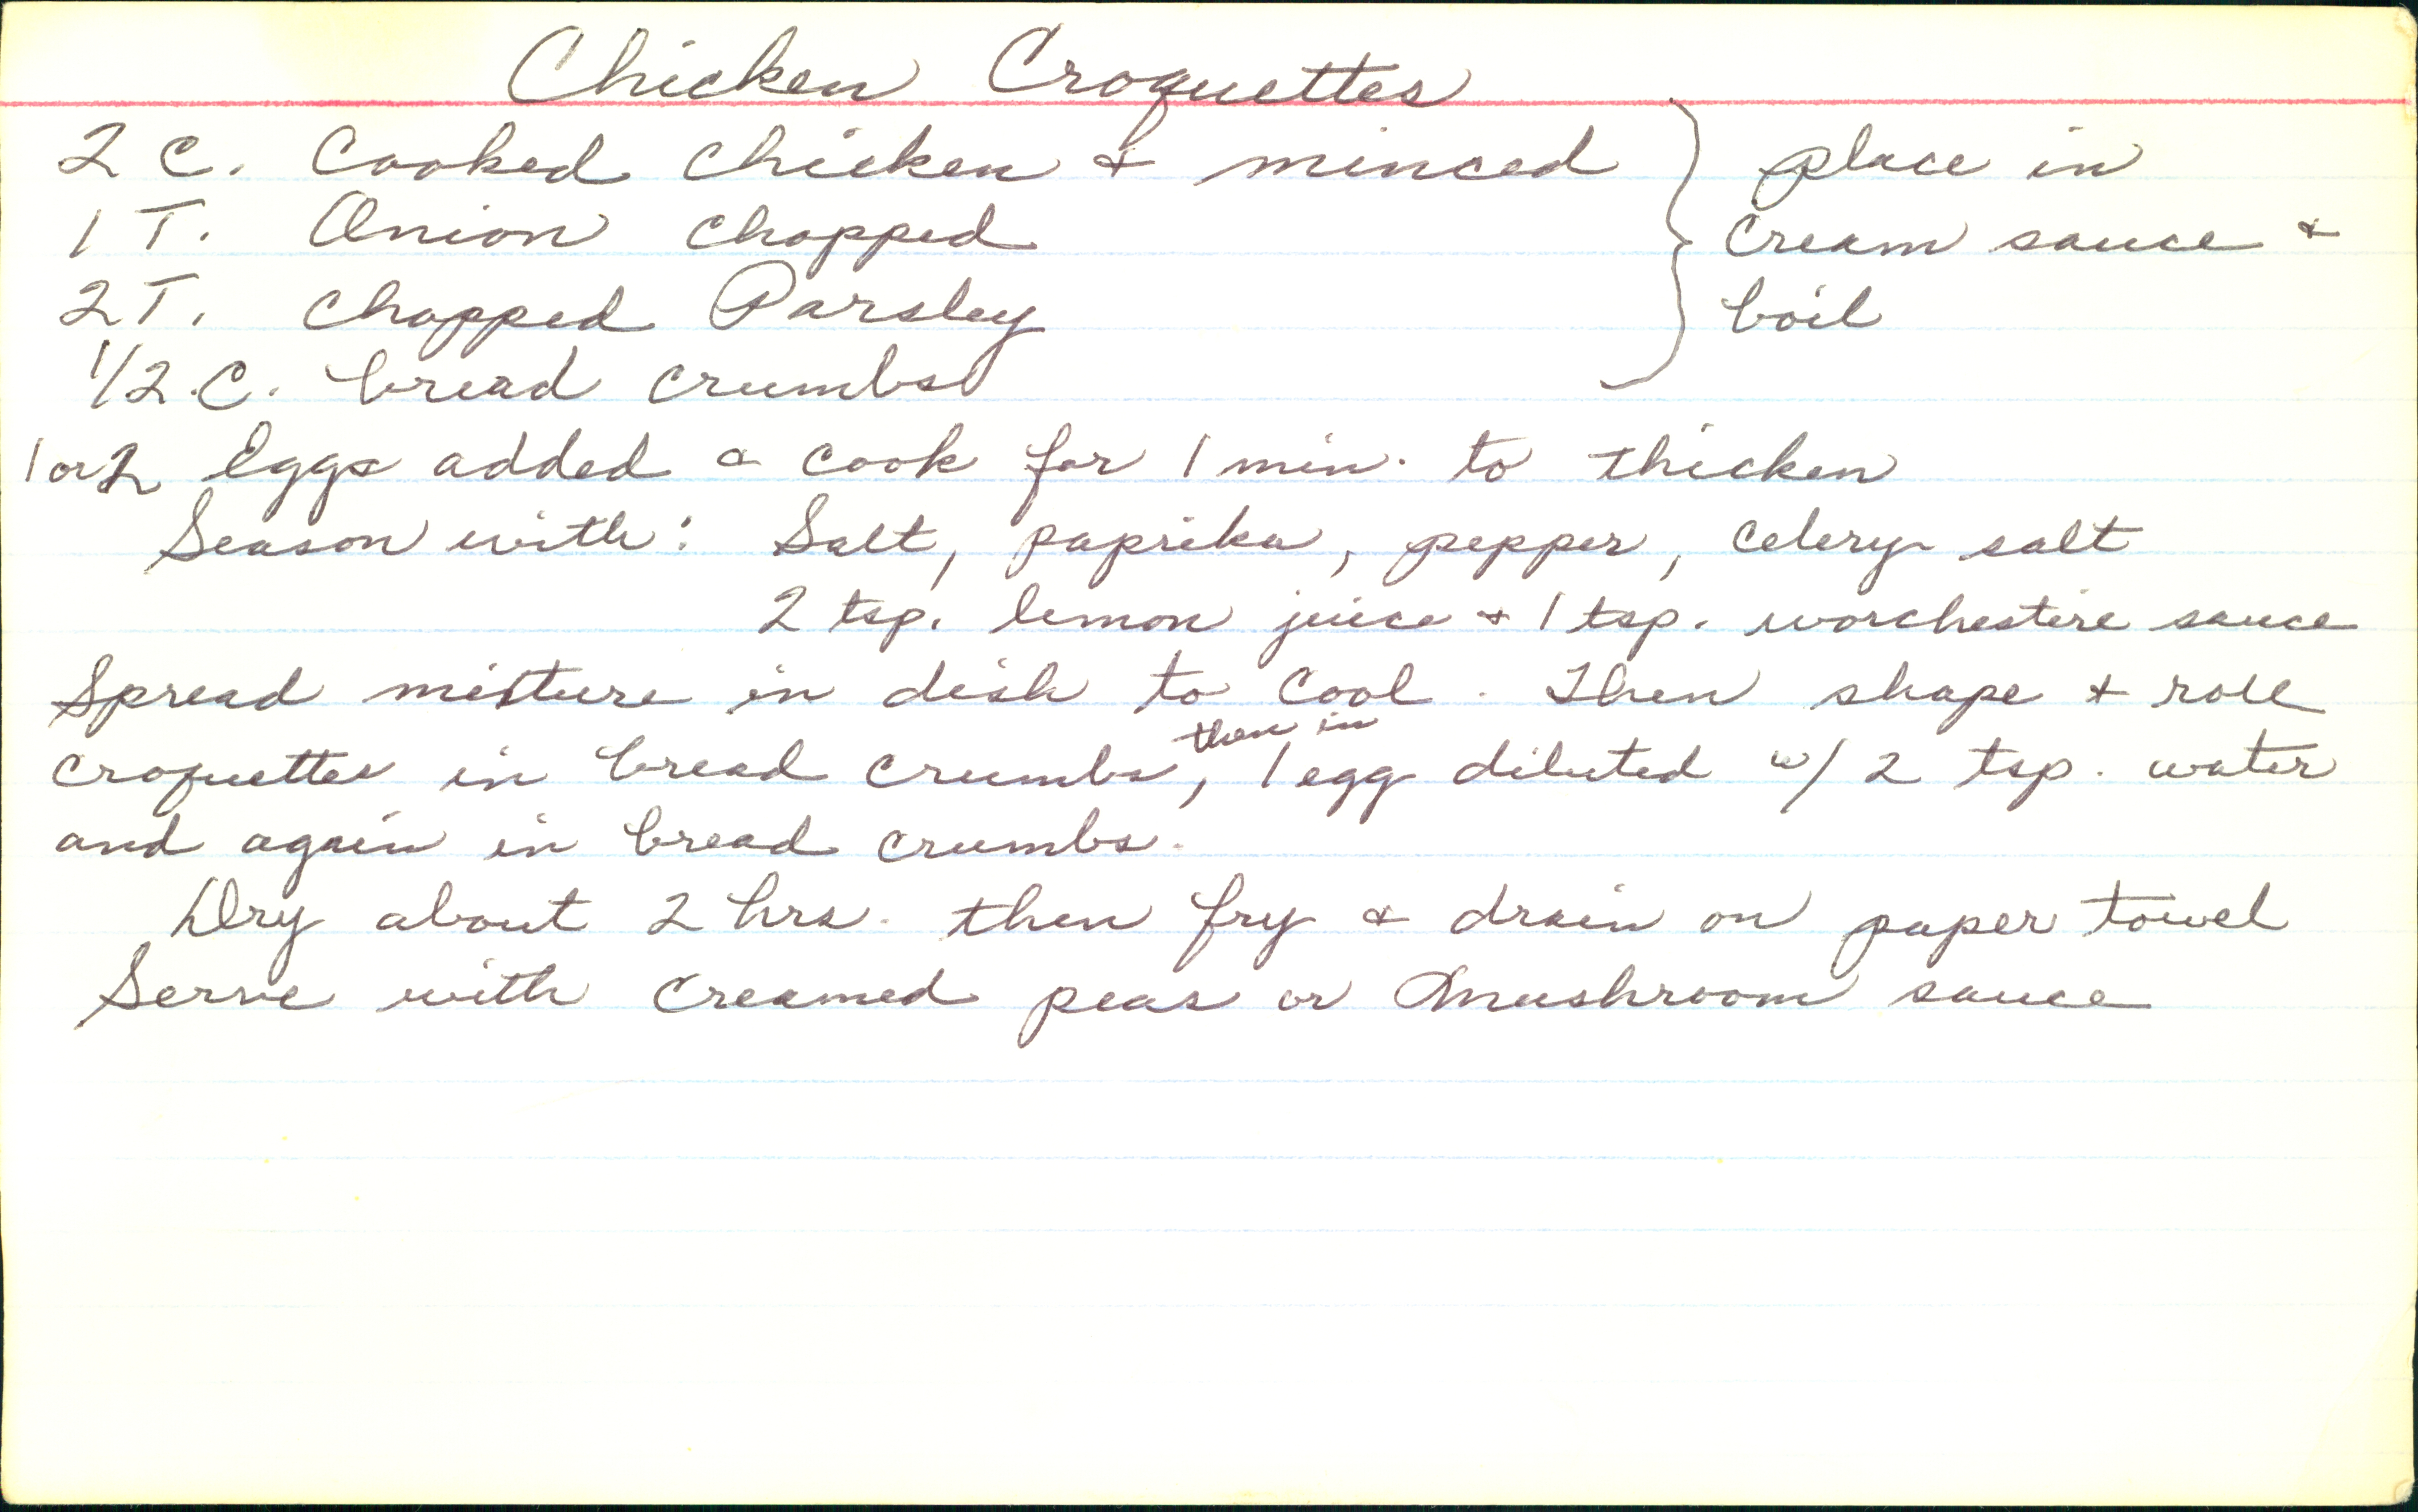 Chicken Croquettes
2 C. Cooked Chicken & minced } place in
1 T. Onion chopped cream sauce &
2 T. Chopped Parsley boil
1/2 C. bread crumbs
1 or 2 Eggs added & cook for 1 min. to thicken
Season with: Salt, paprika, pepper, celery salt
2 tsp. lemon juice & 1 tsp. worchestire sauce
Spread mixture in dish to cool. Then shape & roll
then in
croquettes in bread crumbs, 1 egg diluted w/ 2 tsp. water
and again in bread crumbs.
Dry about 2 hrs. then fry & drain on paper towel
Serve with creamed peas or mushroom sauce